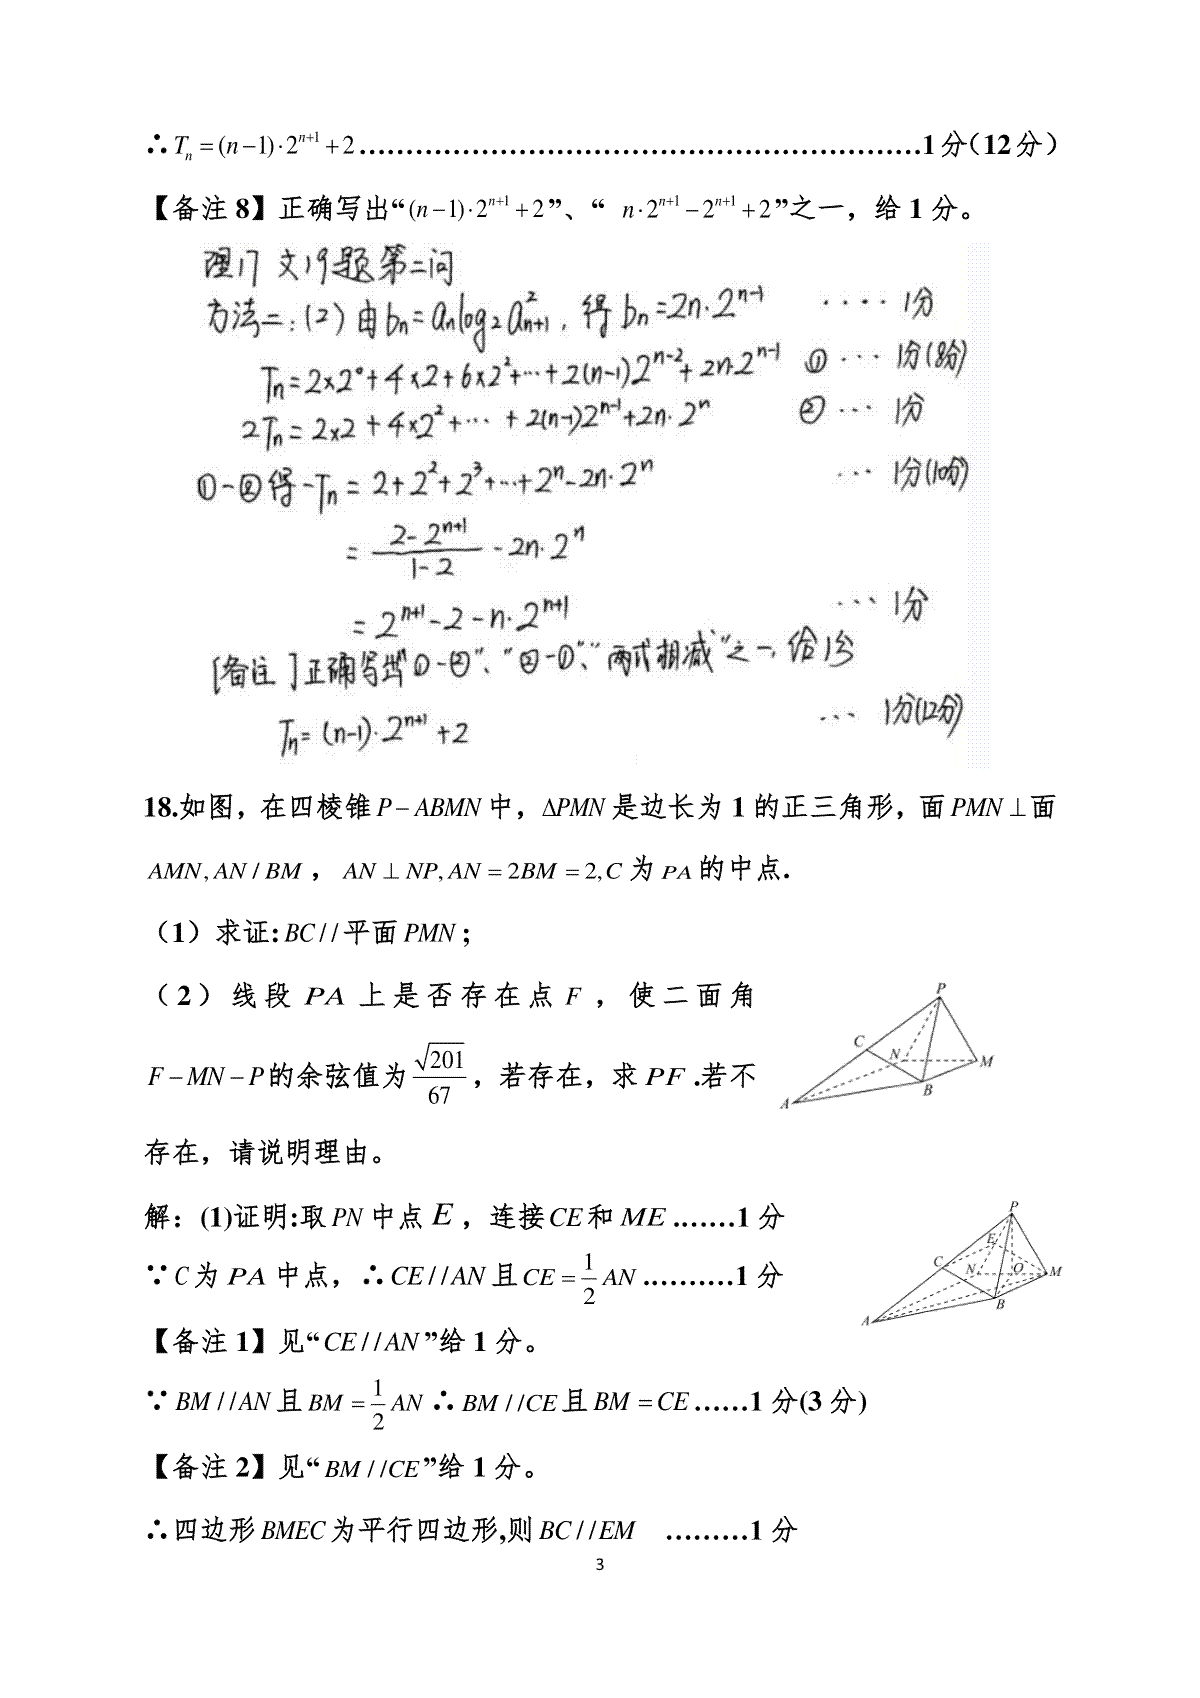 ∴ Tₙ = (n−1)·2ⁿ⁺¹ + 2…………………………………………………1分(12分)
【备注 8】正确写出“(n−1)·2ⁿ⁺¹ + 2”、“ n·2ⁿ⁺¹ − 2ⁿ⁺¹ + 2”之一，给 1 分。
理17 文19题第二问
方法二:(2)由bₙ=aₙlog₂a²ₙ₊₁, 得bₙ=2n·2ⁿ⁻¹ ···· 1分
Tₙ=2×2⁰+4×2+6×2²+···+2(n-1)2ⁿ⁻²+2n·2ⁿ⁻¹ ① ··· 1分(8分)
2Tₙ=2×2+4×2²+··· +2(n-1)2ⁿ⁻¹+2n·2ⁿ ② ··· 1分
①-②得-Tₙ=2+2²+2³+···+2ⁿ-2n·2ⁿ ··· 1分(10分)
= (2-2ⁿ⁺¹)/(1-2) -2n·2ⁿ
=2ⁿ⁺¹-2-n·2ⁿ⁺¹ ··· 1分
[备注]正确写出“①-②”、“②-①”、“两式相减”之一,给1分
Tₙ=(n-1)·2ⁿ⁺¹+2 ··· 1分(12分)
18.如图，在四棱锥 P−ABMN 中，ΔPMN 是边长为 1 的正三角形，面 PMN ⊥面
AMN, AN / BM ， AN ⊥ NP, AN = 2BM = 2, C 为 PA 的中点.
（1）求证: BC / / 平面 PMN ;
（2）线段 PA 上是否存在点 F ，使二面角
F − MN − P 的余弦值为 √201/67 ，若存在，求 PF .若不
存在，请说明理由。
P
C
N
M
B
A
解：(1)证明:取 PN 中点 E ，连接 CE 和 ME …….1 分
∵ C 为 PA 中点，∴ CE / / AN 且 CE = 1/2 AN ……….1 分
P
E
C
N
O
M
B
A
【备注 1】见“ CE / / AN ”给 1 分。
∵ BM / / AN 且 BM = 1/2 AN ∴ BM / /CE 且 BM = CE ……1 分(3 分)
【备注 2】见“ BM / /CE ”给 1 分。
∴四边形 BMEC 为平行四边形,则 BC / / EM ………1 分
3